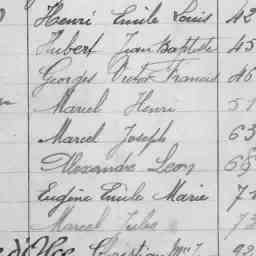 Henri Emile Louis 42
Hubert Jean Baptiste 45
Georges Victor Francis 46
Marcel Henri 51
Marcel Joseph 63
Alexandre Leon 68
Eugène Emile Marie 72
Marcel Jules 73
Christian 92